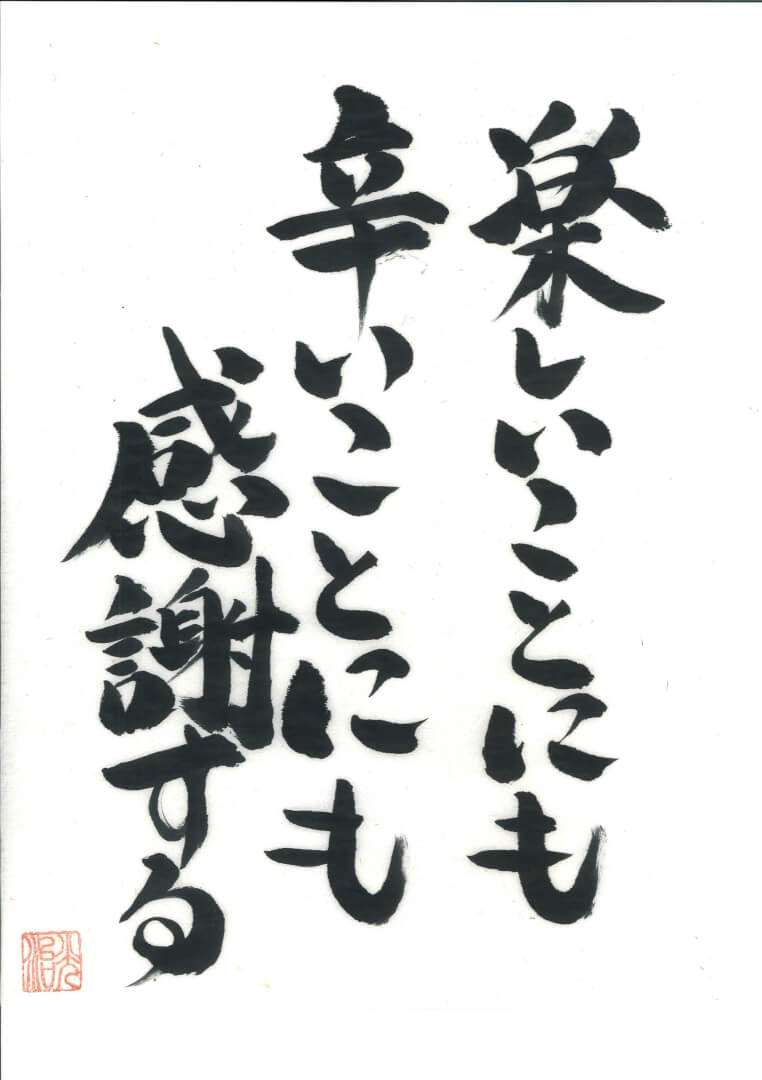 楽しいことにも
辛いことにも
感謝する